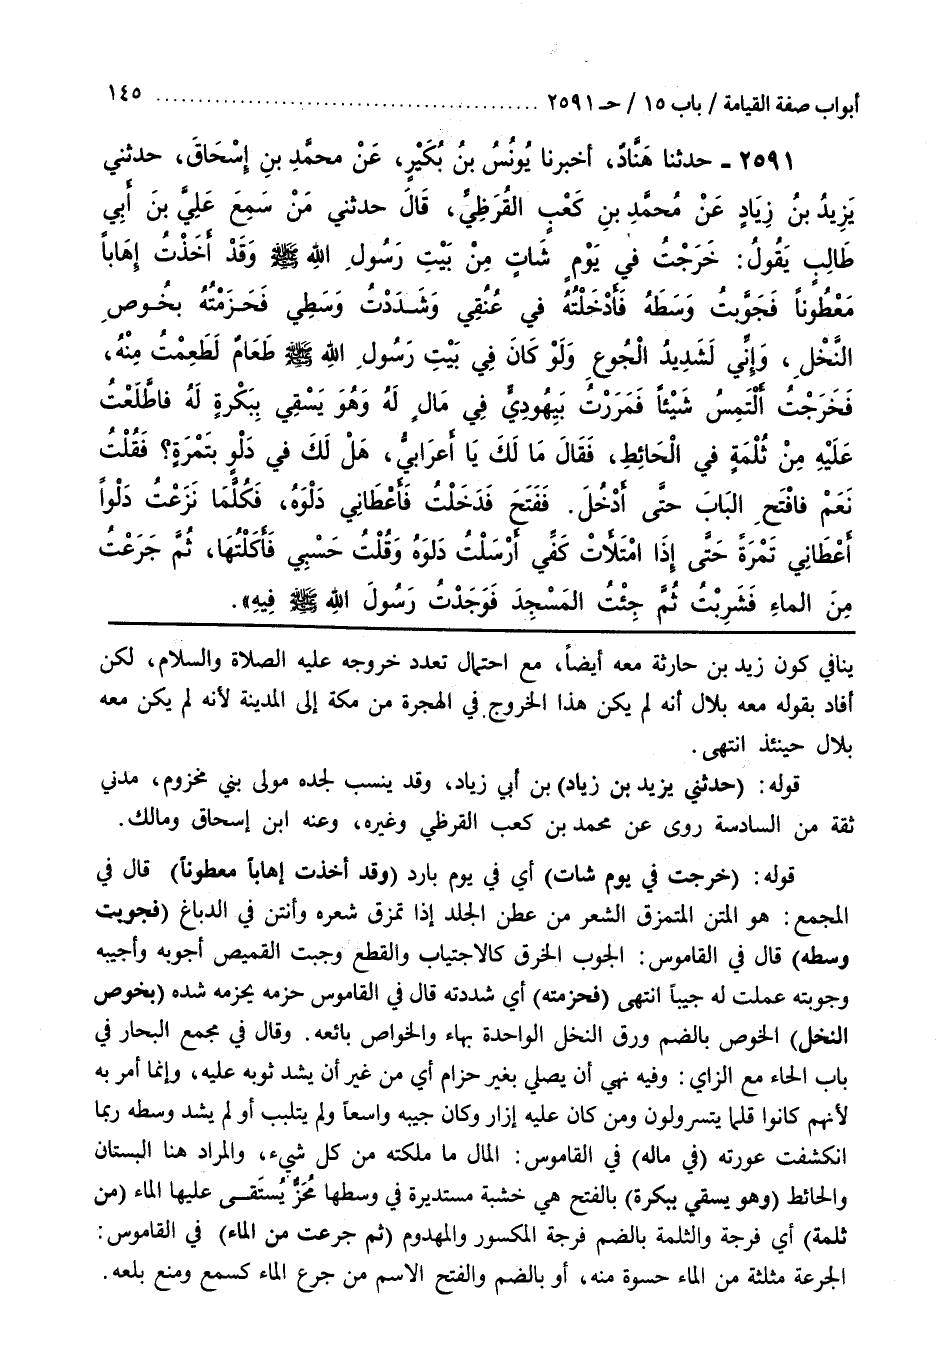 أبواب صفة القيامة / باب ١٥ / حـ ٢٥٩١ ........................................ ١٤٥
٢٥٩١ ـ حدثنا هَنَّادٌ، أخبرنا يُونُسُ بنُ بُكَيْرٍ، عَنْ محمَّدِ بنِ إِسْحَاقَ، حدثني
يَزِيدُ بنُ زِيَادٍ عَنْ مُحمَّدِ بنِ كَعْبٍ القُرَظِيِّ، قَالَ حدثني مَنْ سَمِعَ عَلِيَّ بنَ أَبي
طَالِبٍ يَقُولُ: خَرَجْتُ في يَوْمٍ شَاتٍ مِنْ بَيْتِ رَسُولِ اللهِ ﷺ وَقَدْ أَخَذْتُ إهَاباً
مَعْطُوناً فَجَوَّبتُ وَسَطَهُ فَأَدْخَلْتُهُ في عُنُقِي وَشَدَدْتُ وَسَطِي فَحَزَمْتُهُ بخُوصِ
النَّخْلِ، وَإِنِّي لَشَدِيدُ الْجُوعِ وَلَوْ كَانَ فِي بَيْتِ رَسُولِ اللهِ ﷺ طَعَامٌ لَطَعِمْتُ مِنْهُ،
فَخَرَجْتُ أَلْتَمِسُ شَيْئاً فَمَرَرْتُ بِيَهُودِيٍّ فِي مَالٍ لَهُ وَهُوَ يَسْقِي بِبَكْرةٍ لَهُ فاطَّلَعْتُ
عَلَيْهِ مِنْ ثُلْمَةٍ في الْحَائِطِ، فَقَالَ مَا لَكَ يَا أَعرَابيُّ، هَلْ لَكَ في دَلْوٍ بتَمْرَةٍ؟ فَقُلْتُ
نَعَمْ فافْتَحِ البَابَ حتَّى أَدْخُلَ. فَفَتَحَ فَدَخَلْتُ فَأَعْطَاني دَلْوَهُ، فَكُلَّمَا نَزَعْتُ دَلْواً
أَعْطَاني تَمْرَةً حَتَّى إذَا امْتَلَأَتْ كَفِّي أَرْسَلْتُ دَلوَهُ وَقُلْتُ حَسْبِي فَأَكَلْتُهَا، ثُمَّ جَرَعْتُ
مِنَ الماءِ فَشَرِبْتُ ثُمَّ جِئْتُ المَسْجِدَ فَوَجَدْتُ رَسُولَ اللهِ ﷺ فِيهِ».
ينافي كون زيد بن حارثة معه أيضاً، مع احتمال تعدد خروجه عليه الصلاة والسلام، لكن
أفاد بقوله معه بلال أنه لم يكن هذا الخروج في الهجرة من مكة إلى المدينة لأنه لم يكن معه
بلال حينئذ انتهى.
قوله: (حدثني يزيد بن زياد) بن أبي زياد، وقد ينسب لجده مولى بني مخزوم، مدني
ثقة من السادسة روى عن محمد بن كعب القرظي وغيره، وعنه ابن إسحاق ومالك.
قوله: (خرجت في يوم شات) أي في يوم بارد (وقد أخذت إهاباً معطوناً) قال في
المجمع: هو المتن المتمزق الشعر من عطن الجلد إذا تمزق شعره وأنتن في الدباغ (فجوبت
وسطه) قال في القاموس: الجوب الخرق كالاجتياب والقطع وجبت القميص أجوبه وأجيبه
وجوبته عملت له جيباً انتهى (فحزمته) أي شددته قال في القاموس حزمه يحزمه شده (بخوص
النخل) الخوص بالضم ورق النخل الواحدة بهاء والخواص بائعه. وقال في مجمع البحار في
باب الحاء مع الزاي: وفيه نهي أن يصلي بغير حزام أي من غير أن يشد ثوبه عليه، وإنما أمر به
لأنهم كانوا قلما يتسرولون ومن كان عليه إزار وكان جيبه واسعاً ولم يتلبب أو لم يشد وسطه ربما
انكشفت عورته (في ماله) في القاموس: المال ما ملكته من كل شيء، والمراد هنا البستان
والحائط (وهو يسقي ببكرة) بالفتح هي خشبة مستديرة في وسطها مُحَزٌّ يُستَقـى عليها الماء (من
ثلمة) أي فرجة والثلمة بالضم فرجة المكسور والمهدوم (ثم جرعت من الماء) في القاموس:
الجرعة مثلثة من الماء حسوة منه، أو بالضم والفتح الاسم من جرع الماء كسمع ومنع بلعه.